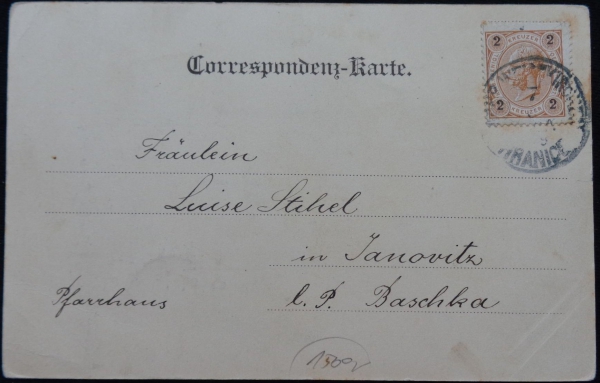 Correspondenz-Karte.
2 KREUZER 2
2 2
HRANICE
Fräulein
Luise Stihel
in Janovitz
Pfarrhaus l. P. Baschka